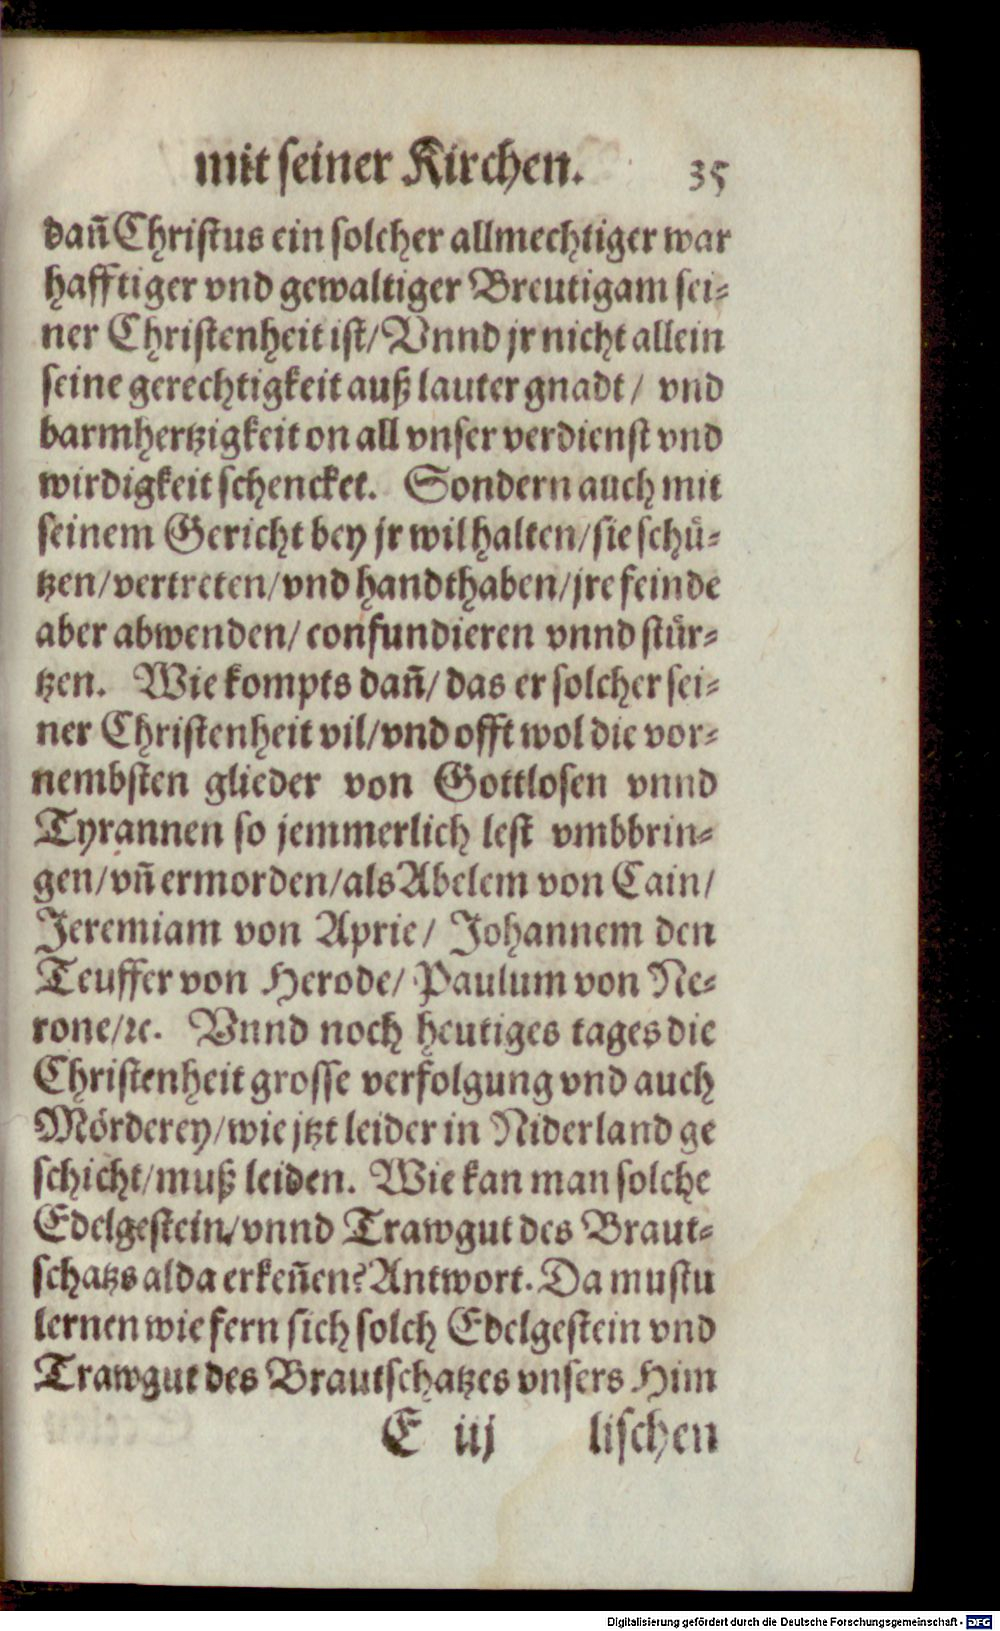 mit seiner Kirchen. 35
dañ Christus ein solcher allmechtiger war
hafftiger vnd gewaltiger Breutigam sei⸗
ner Christenheit ist/ Vnnd jr nicht allein
seine gerechtigkeit auß lauter gnadt / vnd
barmhertzigkeit on all vnser verdienst vnd
wirdigkeit schencket. Sondern auch mit
seinem Gericht bey jr wil halten/ sie schuͤ⸗
tzen/ vertreten/ vnd handthaben/ jre feinde
aber abwenden/ confundieren vnnd stuͤr⸗
tzen. Wie kompts dañ/ das er solcher sei⸗
ner Christenheit vil/ vnd offt wol die vor⸗
nembsten glieder von Gottlosen vnnd
Tyrannen so jemmerlich lest vmbbrin⸗
gen/ vñ ermorden/ als Abelem von Cain/
Jeremiam von Aprie/ Johannem den
Teuffer von Herode/ Paulum von Ne⸗
rone/ ꝛc. Vnnd noch heutiges tages die
Christenheit grosse verfolgung vnd auch
Moͤrderey/ wie jtzt leider in Niderland ge
schicht/ muß leiden. Wie kan man solche
Edelgestein/ vnnd Trawgut des Braut⸗
schatzs alda erkeñen? Antwort. Da mustu
lernen wie fern sich solch Edelgestein vnd
Trawgut des Brautschatzes vnsers Him
E iij lischen
Digitalisierung gefördert durch die Deutsche Forschungsgemeinschaft - DFG